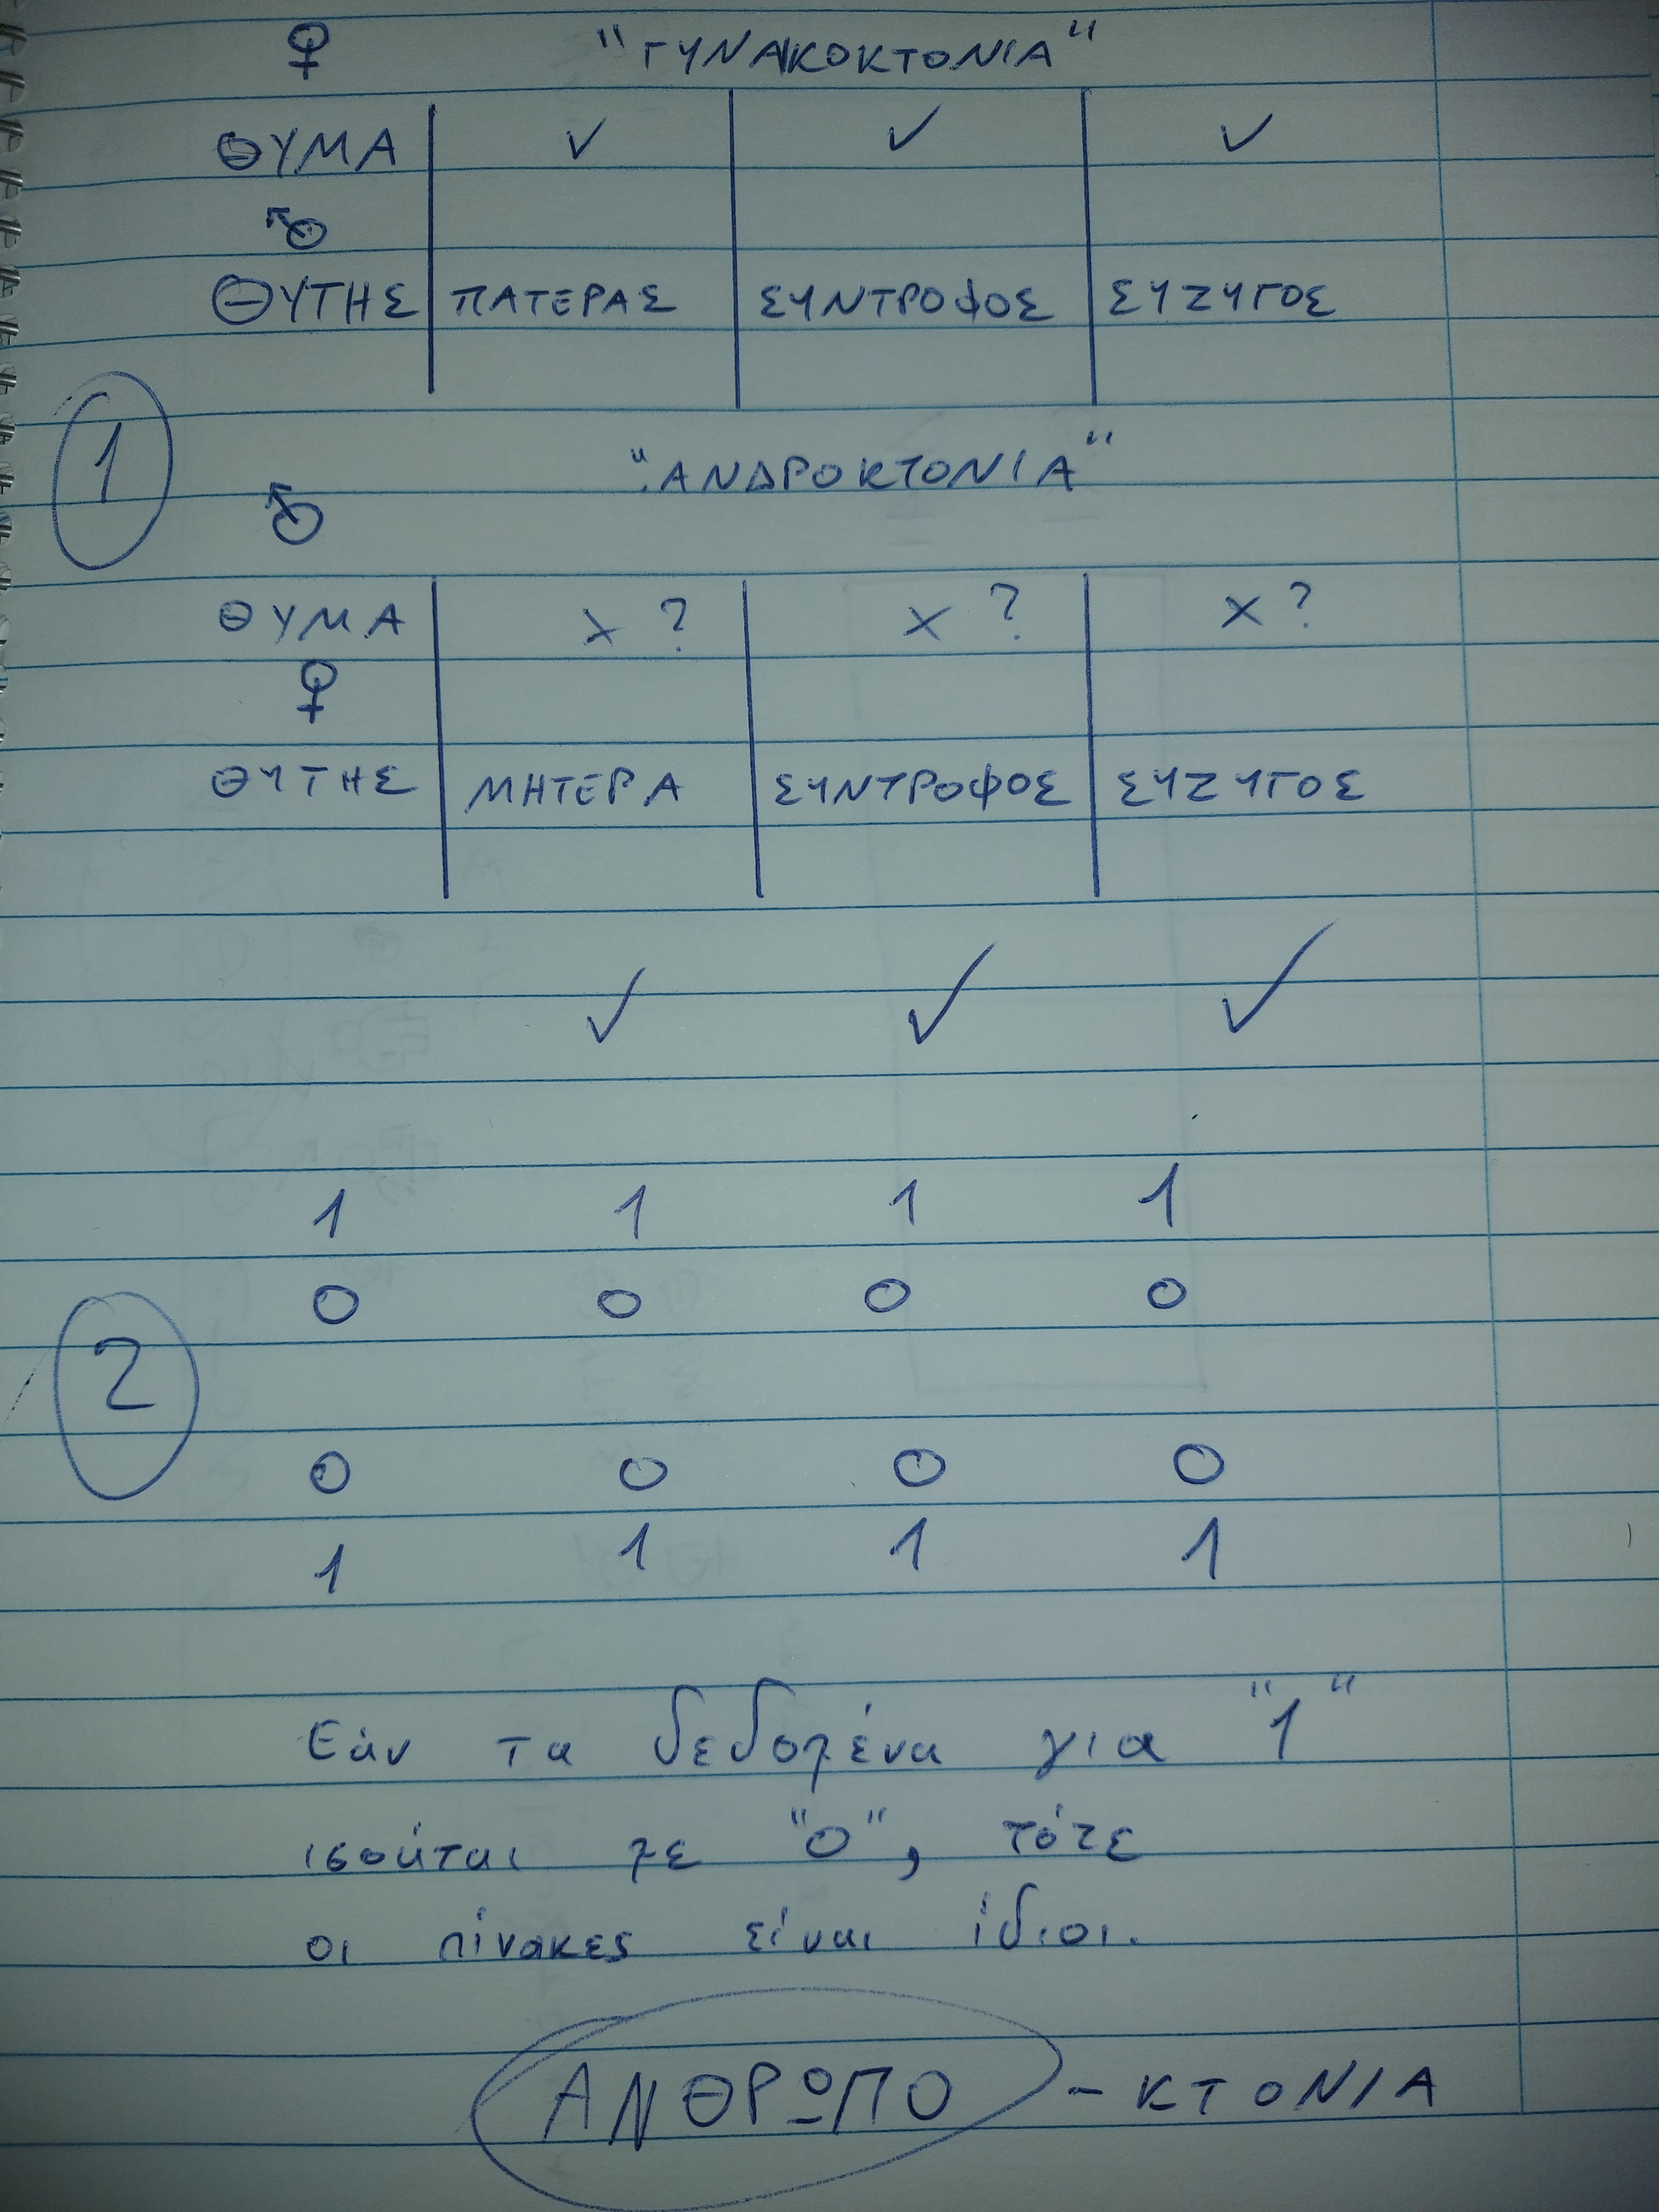 ♀ "ΓΥΝΑΙΚΟΚΤΟΝΙΑ"
ΘΥΜΑ ✓ ✓ ✓
♂
ΘΥΤΗΣ ΠΑΤΕΡΑΣ ΣΥΝΤΡΟΦΟΣ ΣΥΖΥΓΟΣ
1
"ΑΝΔΡΟΚΤΟΝΙΑ"
♂
ΘΥΜΑ x ? x ? x ?
♀
ΘΥΤΗΣ ΜΗΤΕΡΑ ΣΥΝΤΡΟΦΟΣ ΣΥΖΥΓΟΣ
✓ ✓ ✓
1 1 1 1
0 0 0 0
2
0 0 0 0
1 1 1 1
Εάν τα δεδομένα για "1"
ισούται με "0", τότε
οι πίνακες είναι ίδιοι.
ΑΝΘΡΩΠΟ - ΚΤΟΝΙΑ